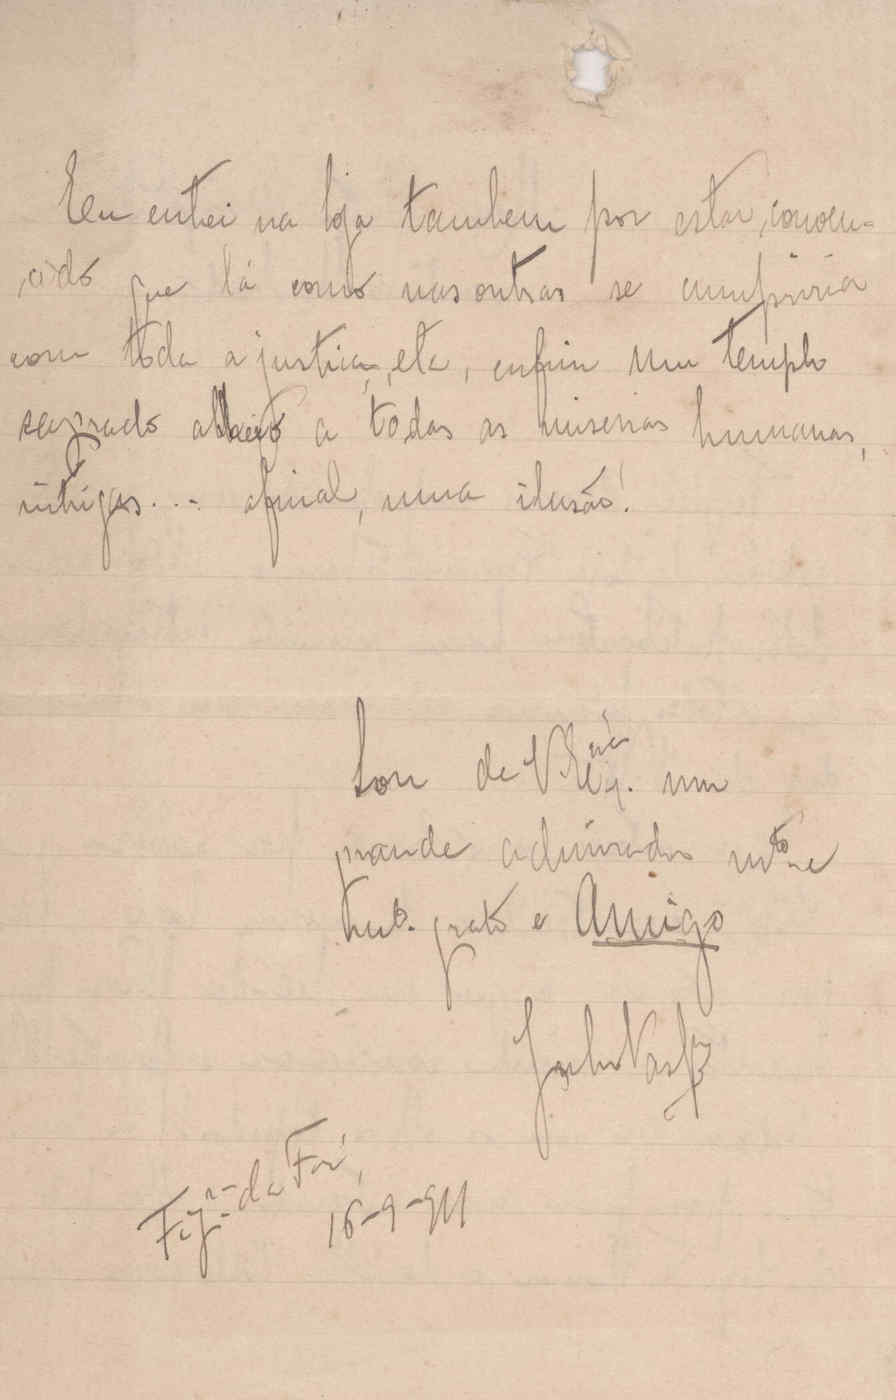 Eu entrei na loja tambem por estar conven-
cido que lá como nas outras se cumpriria
com toda a justiça, etc, enfim um templo
sagrado alheio a todas as miserias humanas,
intrigas... afinal, uma ilusão!
Sou de V. Ex.cia um
grande admirador m.to e
m.to grato e Amigo
Fig.ra da Foz,
16-9-911